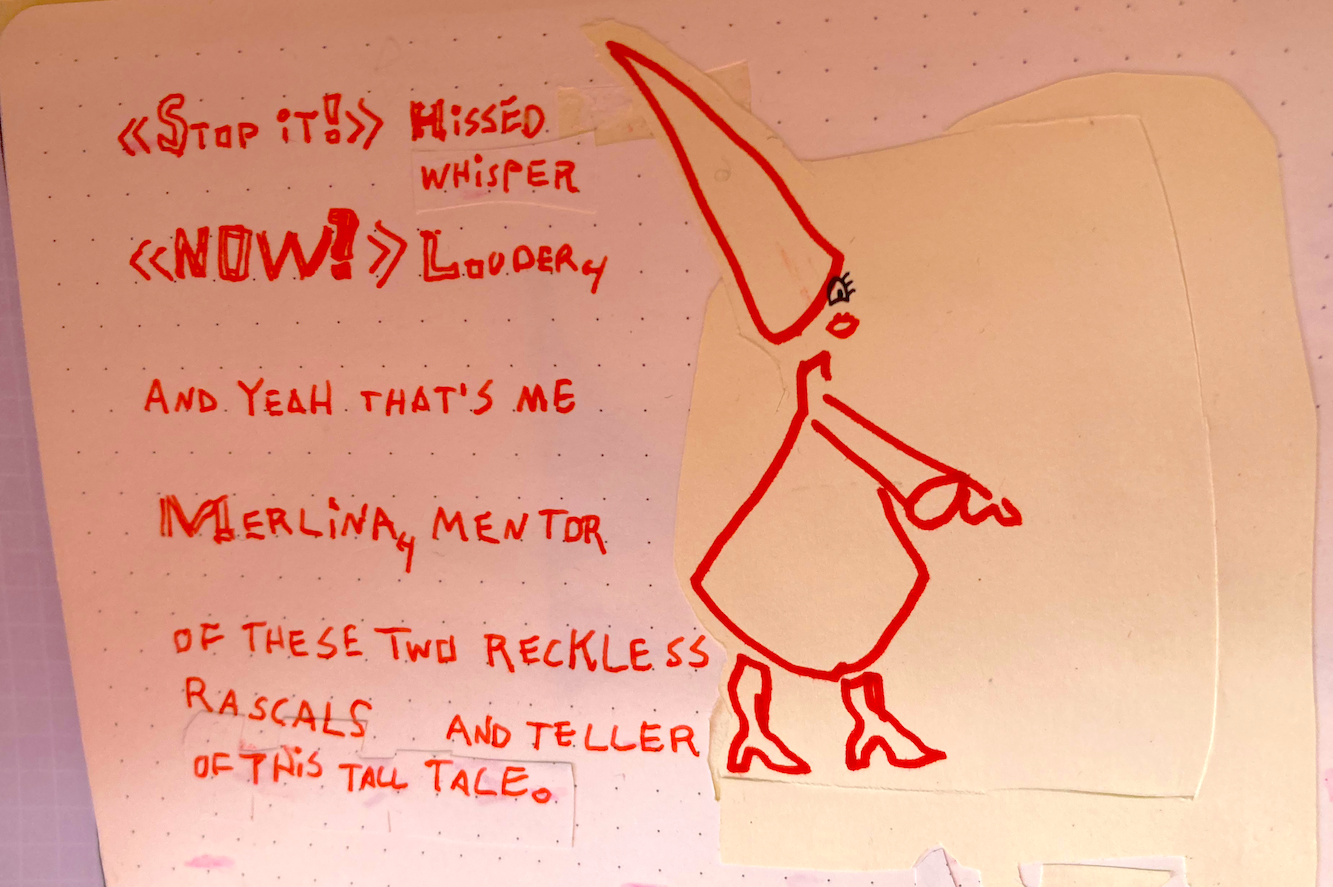 «Stop it!» Hissed
whisper
«NOW!» Louder,
And yeah that's me
Merlina, mentor
of these two reckless
rascals and teller
of this tall tale.